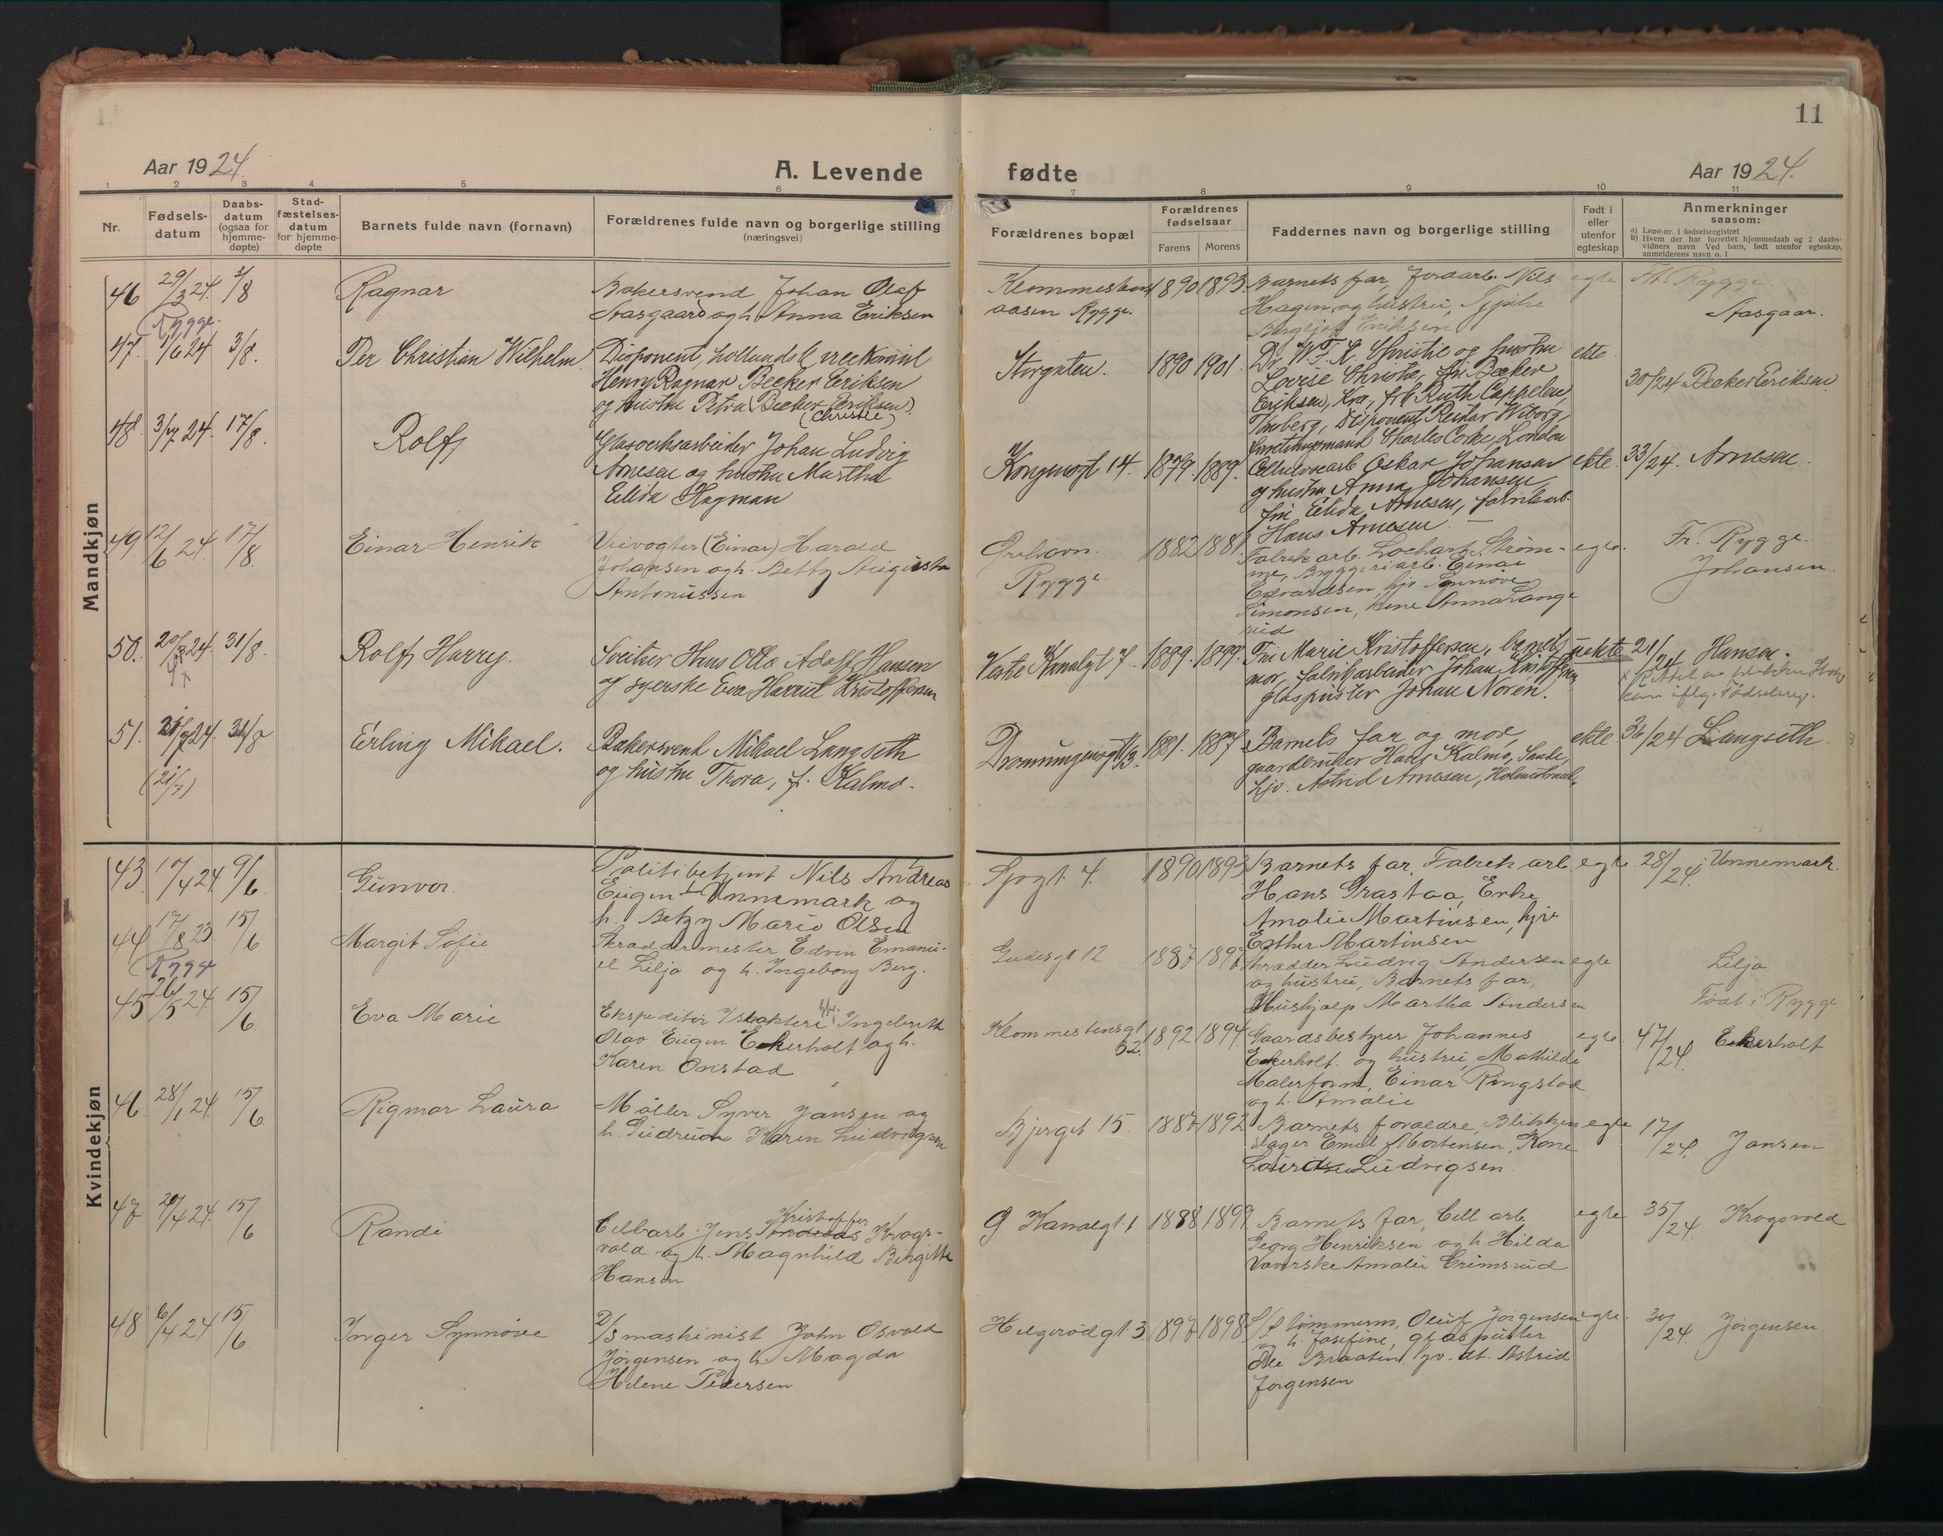 11
Aar 1924.
A. Levende
fødte
Aar 1924.
1 2 3 4 5 6 7 8 9 10 11
Nr.
Fødsels-
datum
Daabs-
datum
(ogsaa for
hjemme-
døpte)
Stad-
fæstelses-
datum
for hjemme-
døpte
Barnets fulde navn (fornavn)
Forældrenes fulde navn og borgerlige stilling
(næringsvei)
Forældrenes bopæl
Forældrenes
fødselsaar
Farens Morens
Faddernes navn og borgerlige stilling
Født i
eller
utenfor
egteskap
Anmerkninger
saasom:
a) Løpe-nr. i fødselsregistret
b) Hvem der har forrettet hjemmedaab og 2 daabs-
vidners navn Ved barn, født utenfor egteskap,
anmelderens navn o. l
Mandkjøn
46 29/3 24. 3/8
Rygge.
Ragnar
Bakersvend Johan Olaf
Aasgaard og h. Anna Eriksen
aasen Rygge.
1890 1893.
Barnets far, Jordarb. Nils
Hagen og hustru,
Eriksen
egte
Rygge
Aasgaar.
47. 1/6 24 3/8.
Per Christian Wilhelm.
Disponent, hollandsk
Henry Ragnar Becker Eriksen
og hustru Petra (Becker Eriksen).
(Christie)
Storgaten.
1890 1901.
Dr. W. F. K. Christie og hustru
Lovise Christie, fru Becker
Eriksen, frk Ruth Cappelen,
Disponent Reidar Wiborg,
Charles Corke, London
ekte
30/24 Becker Eriksen
48. 3/7 24. 17/8.
Rolf
Glasverksarbeider Johan Ludvig
Arnesen og hustru Martha
Elida Hagman
Kongensgt 14.
1879. 1889.
Cellulosearb Oskar Johansen
og hustru Anna Johansen
frk Elida Arnesen, fabrikarb.
Hans Arnesen.
ekte.
33/24. Arnesen.
49. 12/6 24. 17/8
Einar Henrik
Veivogter (Einar) Harald
Johansen og h. Betty Augusta
Antonissen
Ørehavn.
Rygge.
1882 1881.
Fabrik arb. Lochart Strøm-
me, Bryggeriarb. Einar
Edvardsen, hjv Synnøve
Simonsen, kone Anna Lange
rud
egte.
Fr. Rygge.
Johansen.
50. 24. 31/8.
Rolf Harry.
Sveitser Hans Otto Adolf Hansen
og syerske Eva Harriet Kristoffersen
Vestre Kanalgt 7.
1889. 1899.
Frk Marie Kristoffersen, barnets
mor, fabrikarbeider Johan
glaspuster Johan Noren.
uekte
21/24 Hansen.
51. 21/7 24. 31/8
(21/7)
Erling Mikael.
Bakersvend Mikael Langseth
og hustru Thora, f. Kalmo.
Dronningensgt 13.
1881. 1887.
Barnets far og mor,
gaardbruker Hans Kalmo, Sande,
hjv. Astrid Arnesen,
ekte
36/24 Langseth.
Kvindekjøn
43. 17/4 24 9/6
Gunvor.
Politibetjent Nils Andreas
Eugen Unnemark og
h. Betzy Marie Olsen
Sjøgt 4.
1890 1893
Barnets far, Fabrik arb
Hans Grastaa, Enke
Amalie Martinsen, hjv
Esther Martinsen
egte.
28/24. Unnemark.
44 17/8 23 15/6
Rygge
Margit Sofie
Skræddermester Edvin Emanu-
el Lilja og h. Ingeborg Berg.
Gudesgt 12
1887 1897
Skrædder Ludvig Andersen
og hustru, Barnets far,
Hushjælp Martha Andersen
egte
Lilja
Født i Rygge
45 26/5 24. 15/6.
Eva Marie
Ekspeditør Ingebreth
Olav Eugen Ekerholt og h.
Karen Onstad
Klommestensgt
52.
1892 1894.
Gaardsbestyrer Johannes
Ekerholt og hustru, Mathilde
Malerform, Einar Ringstad
og h. Amalie
egte.
47/24. Ekerholt
46 28/1 24. 15/6
Rigmor Laura
Møller Syver Jansen og
h. Gudrun Karen Ludvigsen
Bjergt 15.
1887 1892
Barnets forældre, Blikken
slager Emil Mortensen, Kone
Ludvigsen.
egte
17/24. Jansen
47 20/4 24. 15/6
Randi
Kristoffer
Cellarb. Jens Andreas Krogs-
vold og h. Magnhild Birgitte
Hansen
Kanalgt 1
1888 1899
Barnets far, Cell arb
Georg Henriksen og h. Hilda
Vaverske Amalie Grimsrud
egte
35/24. Krogsvold
48 6/4 24 15/6
Inger Synnøve
D/S maskinist John Osvald
Jørgensen og h. Magda
Helene Pedersen
Helgerødgt 3.
1897 1898
tømmerm, Oluf Jørgensen
og h. Josefine, glaspuster
Ole Braaten, hv. dt. Astrid
Jørgensen
egte.
30/24. Jørgensen